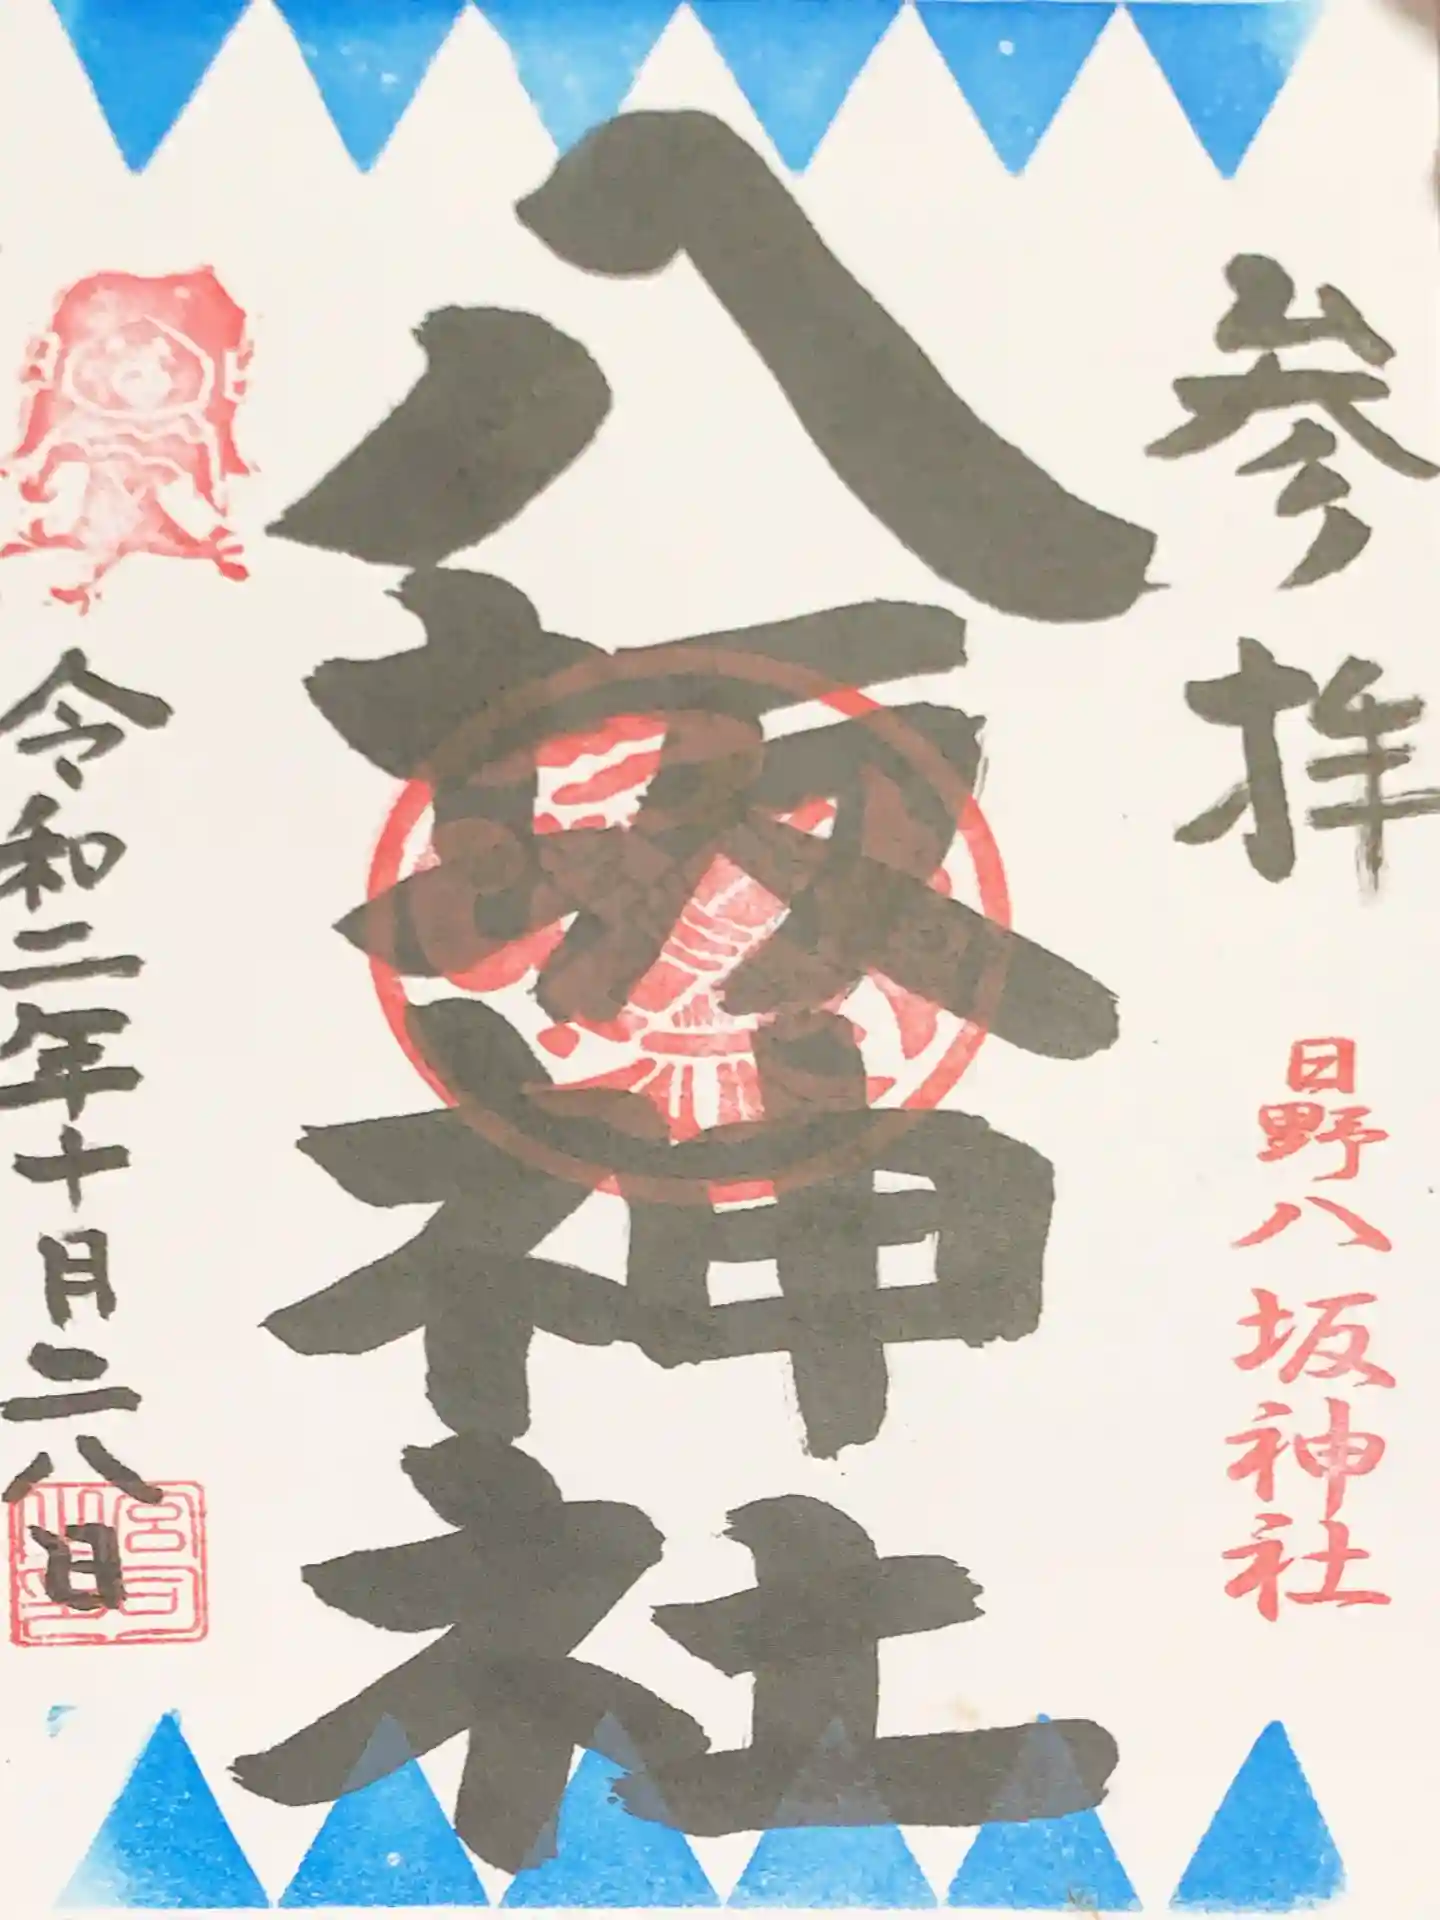 参拝
日野八坂神社
八坂神社
令和二年十月二八日